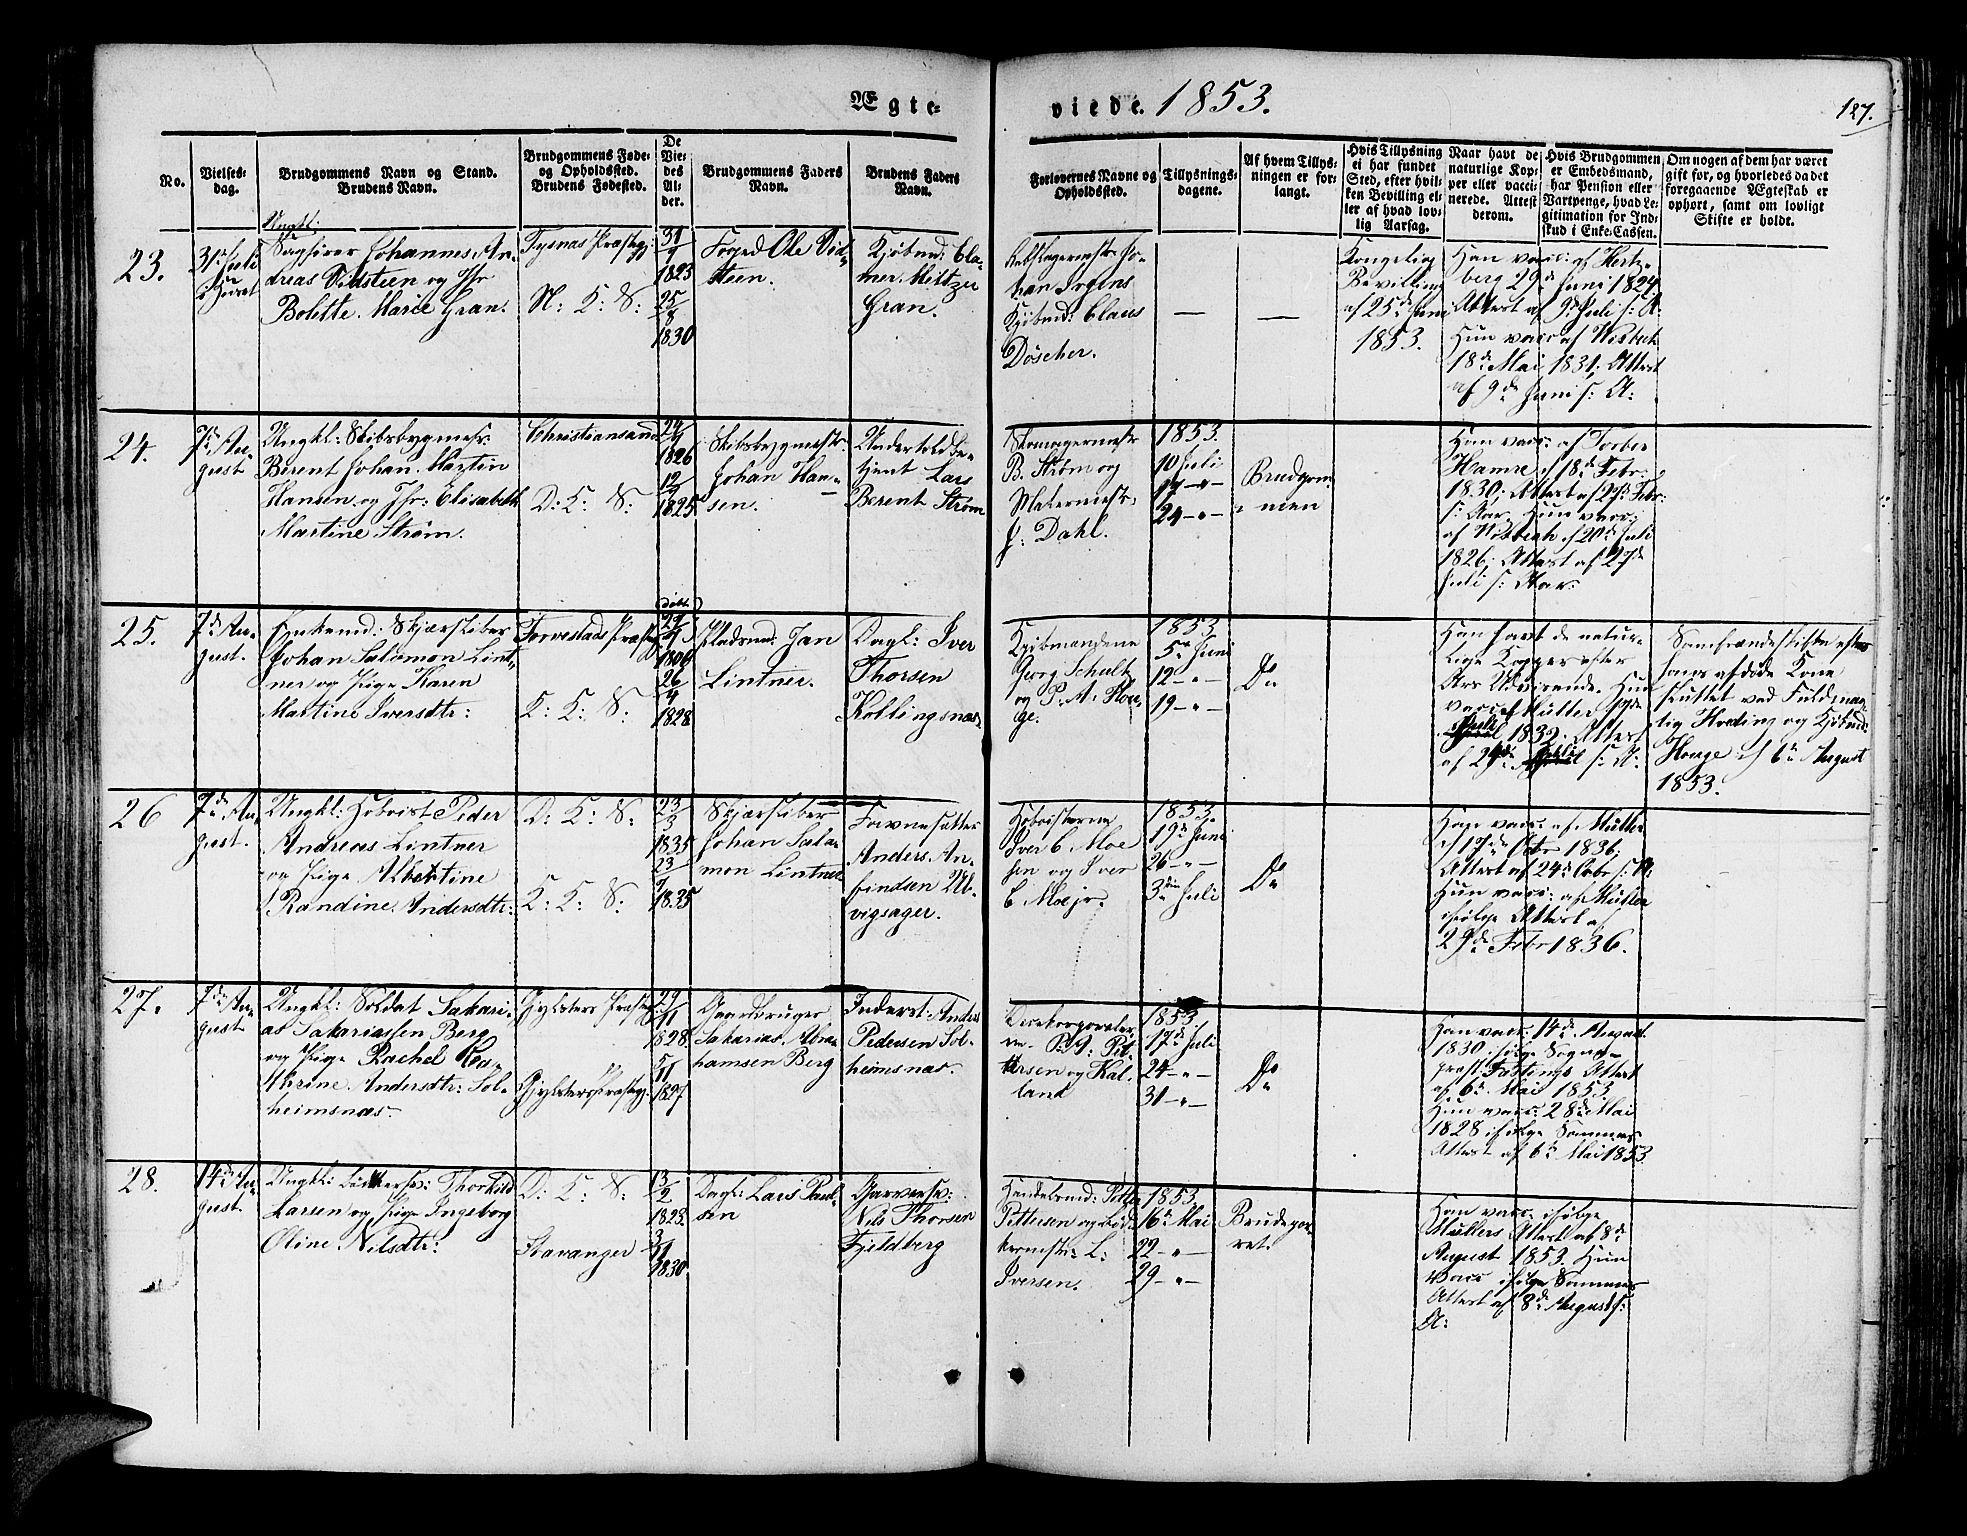 Ægte-
viede. 1853.
127.
No.
Vielses-
dag.
Brudgommens Navn og Stand.
Brudens Navn.
Brudgommens Føde-
og Opholdssted.
Brudens Fødested.
De
Vie-
des
Al-
der.
Brudgommens Faders
Navn.
Brudens Faders
Navn.
Forlovernes Navne og
Opholdssted.
Tillysnings-
dagene.
Af hvem Tillys-
ningen er for-
langt.
Hvis Tillysning
ei har fundet
Sted, efter hvil-
ken Bevilling el-
ler af hvad lov-
lig Aarsag.
Naar havt de
naturlige Kop-
per eller vacci-
nerede. Attest
derom.
Hvis Brudgommen
er Embedsmand,
har Pension eller
Vartpenge, hvad Le-
gitimation for Ind-
skud i Enke-Cassen.
Om nogen af dem har været
gift før, og hvorledes da det
foregaaende Ægteskab er
ophørt, samt om lovligt
Skifte er holdt.
23.
31te Juli
i Huset
Ungkl:
Sagfører Johannes An-
dreas Vidsteen og Jfr
Bolette Marie Gran.
Tysnæs Præstegj
N: K: S:
31
1
1823
25
8
1830
Foged Ole Vid-
steen.
Kjøbmd: Cla-
mer Meltzer
Gran.
Rebslagermestr Jo-
han Irgens
Kjøbmd: Claus
Döscher.
—
—
Kongelig
Bevilling
af 25de Juni
1853.
Han vacc: af Hertz-
berg 29de Juni 1824
Attest af 9de Juli s: A.
Hun vacc af Wisbech
18de Mai 1831; Attest
af 9de Juni s: A:
24.
7de Au-
gust
Ungkl: Skibsbygmestr:
Berent Johan Martin
Hansen og Jfr: Elisabeth
Martine Strøm.
Christiansand
D: K: S:
24
1
1826
12
9
1825
Skibsbygmestr.
Johan Han-
sen.
Undertoldbe-
tjent Lars
Berent Strøm
Skomagermestr
B. Strøm og
Malermestr:
J. Dahl.
1853.
10 Juli
17 — " —
24 — " —
Brudgom-
men
Han vacc: af Torber
Hamre d 18de Febr:
1830; Attest af 27de Febr:
s: Aar. Hun vacc:
af Wisbech d 20de Juli
1826; Attest af 27de
Juli s: Aar.
25.
7de Au-
gust.
Enkemd: Skjærsliber
Johan Salomon Lint-
ner og Pige Karen
Martine Iversdtr:
Torvestads Præstegj
K: K: S:
(døbt)
1806
26
4
1828
Pladsmd: Jan
Lintner.
Dagl: Iver
Thorsen
Kollingsnæs
Kjøbmændene
Georg Schult
og P. A. Ploe-
ge.
1853
5te Juni
12 — " —
19 — " —
Do
Han havt de natur-
lige Kopper efter
Ars Udvisende. Hun
vacc af Müller
Juli 1832. Attest
af 29de s: A:
Samfrændeskifte efter
hans afdøde Kone
sluttet ved Fuldmæg-
tig Hveding og Kjøbmd
Hauge d 6te August
1853.
26
7de Au-
gust.
Ungkl: Hoboist Peder
Andreas Lintner
og Pige Albertine
Randine Andersdtr:
D: K: S:
K: K: S:
23
3
1835
23
9
1835
Skjærsliber
Johan Salo-
mon Lintner
Favnesætter
Anders An-
findsen Ul-
vigsager.
Hoboisterne
Iver C. Moe
sen og Iver
C Moe jr.
1853.
19de Juni
26 — " —
3die Juli
Do
Han vacc: af Müller
d 17de Octbr 1836;
Attest af 24de Octbr s: A:
Hun vacc: af Müller
ifølge Attest af
29de Febr 1836.
27.
7de Au-
gust
Ungkl: Soldat Sakari-
as Sakariassen Berg
og Pige Rachel Ca-
thrine Andersdtr: Sol-
heimsnæs.
Gjylsters Præstegj
Gjylsters Præstegj:
29
11
1828.
5
11
1827
Gaardbruger
Sakarias Abra-
hamsen Berg
Inderst: Anders
Pedersen Sol-
heimsnæs.
P. G. Pet-
tersen og Kal-
land
1853
17de Juli
24 — " —
31 — " —
Do
Han vacc 14de August
1830 ifølge Sogne-
præst Attest
af 6te Mai 1853.
Hun vacc: 28de Mai
1828 ifølge Sammes
Attest af 6te Mai 1853.
28.
14de Au-
gust.
Ungkl: Bødkersv: Thorkild
Larsen og Pige Ingeborg
Oline Nilsdtr:
D: K: S:
Stavanger
13
2
1823.
3
11
1830
Dagl: Lars Paul-
sen
Garversv:
Nils Thorsen
Fjeldberg
Handelsmd: Petter
Pettersen og Bød-
kermestr: L:
Iversen.
1853.
16de Mai
22 — " —
29 — " —
Brudepar-
ret.
Han vacc: ifølge
Müllers Attest af 8de
August 1853. Hun
vacc ifølge Sammes
Attest af 8de August s:
A: